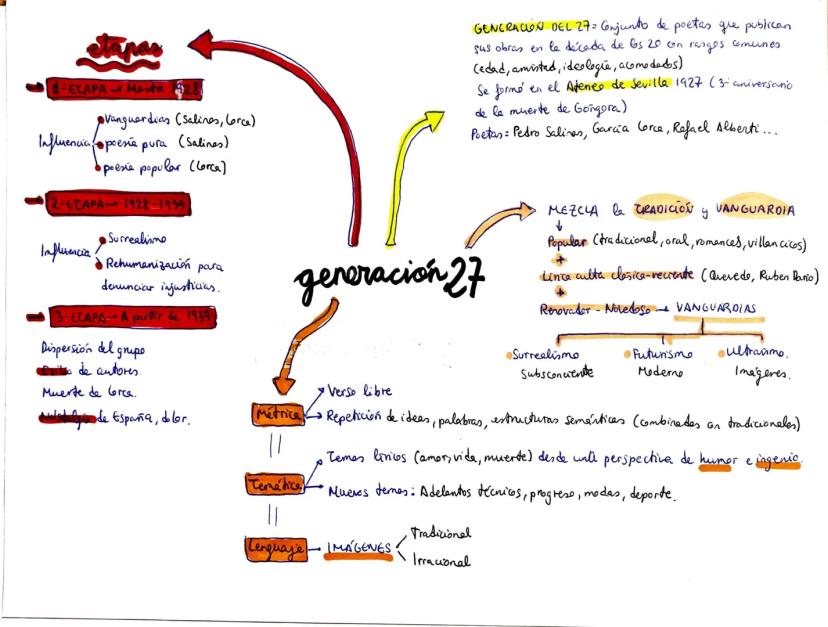 GENERACIÓN DEL 27 = Conjunto de poetas que publican
sus obras en la década de los 20 con rasgos comunes
(edad, amistad, ideología, acomodados)
Se formó en el Ateneo de Sevilla 1927 (3er aniversario
de la muerte de Góngora)
Poetas = Pedro Salinas, García Lorca, Rafael Alberti...
etapas
1-ETAPA → Hasta 1928
Influencia
Vanguardias (Salinas, Lorca)
poesía pura (Salinas)
poesía popular (Lorca)
2-ETAPA → 1928-1939
Influencia
Surrealismo
Rehumanización para
denunciar injusticias.
3-ETAPA → A partir de 1939
Dispersión del grupo
Exilio de autores.
Muerte de Lorca.
Nostalgia de España, dolor.
generación 27
MEZCLA la TRADICIÓN y VANGUARDIA
↓
Popular (tradicional, oral, romances, villancicos)
+
Línea culta clásica-reciente (Quevedo, Ruben Darío)
+
Renovador - Novedoso → VANGUARDIAS
Surrealismo
Subsconciente
Futurismo
Moderno
Ultraísmo.
Imágenes.
Métrica
Verso libre
Repetición de ideas, palabras, estructuras semánticas (combinados con tradicionales)
Temática
Temas líricos (amor, vida, muerte) desde una perspectiva de humor e ingenio.
Nuevos temas: Adelantos técnicos, progreso, modas, deporte.
Lenguaje → IMÁGENES
Tradicional
Irracional